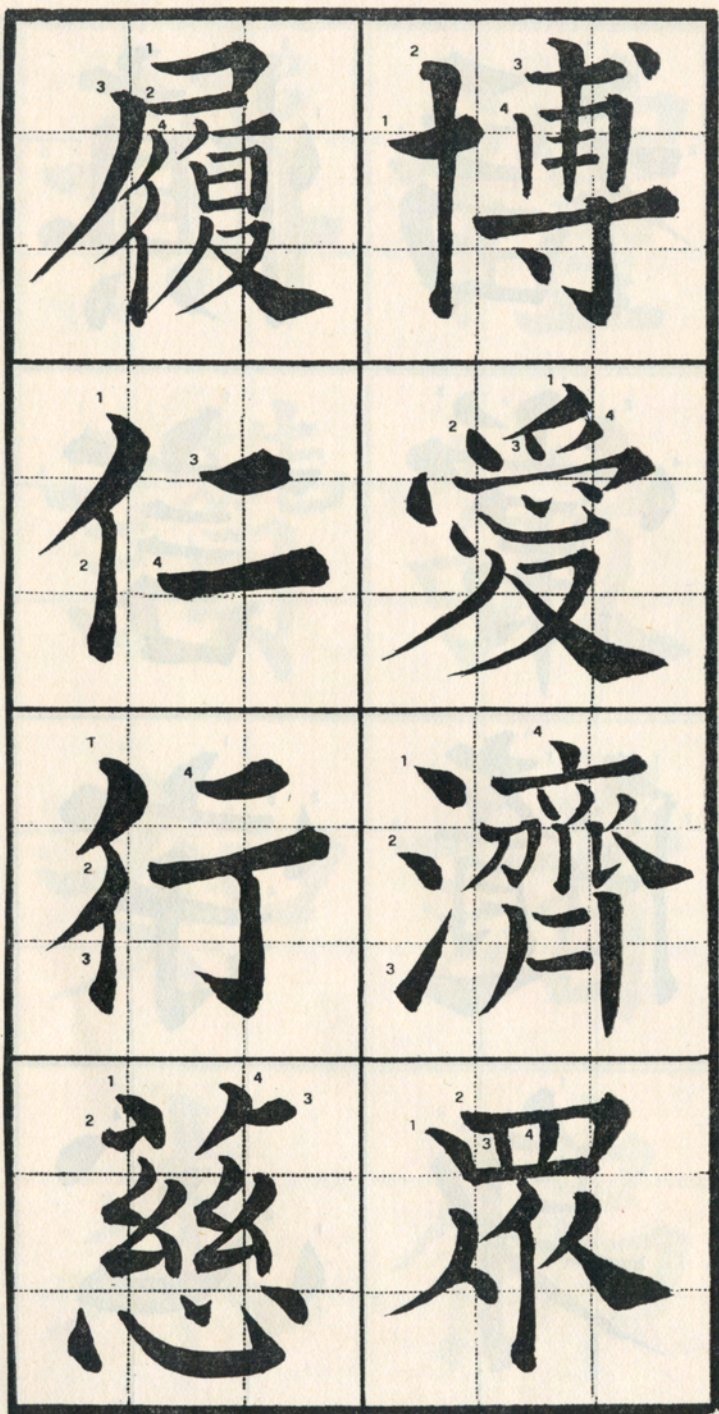 博愛濟眾
履仁行慈